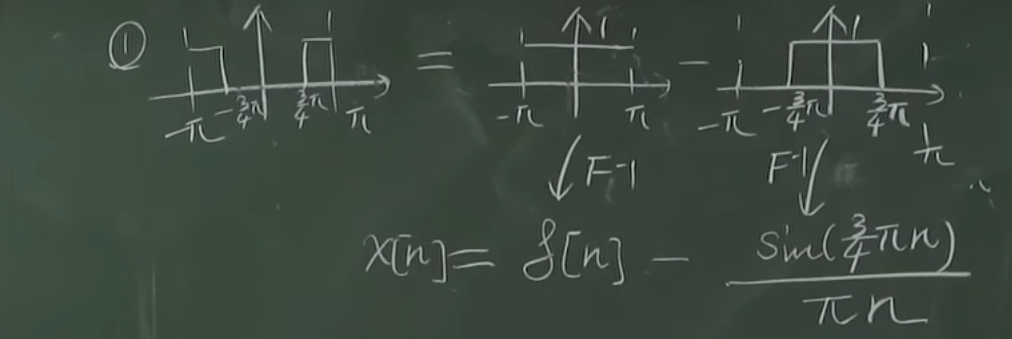 ① = 1 − 1
-π -3/4π 3/4π π -π π -π -3/4π 3/4π π
F-1 F-1
x[n] = δ[n] − sin(3/4πn)
πn